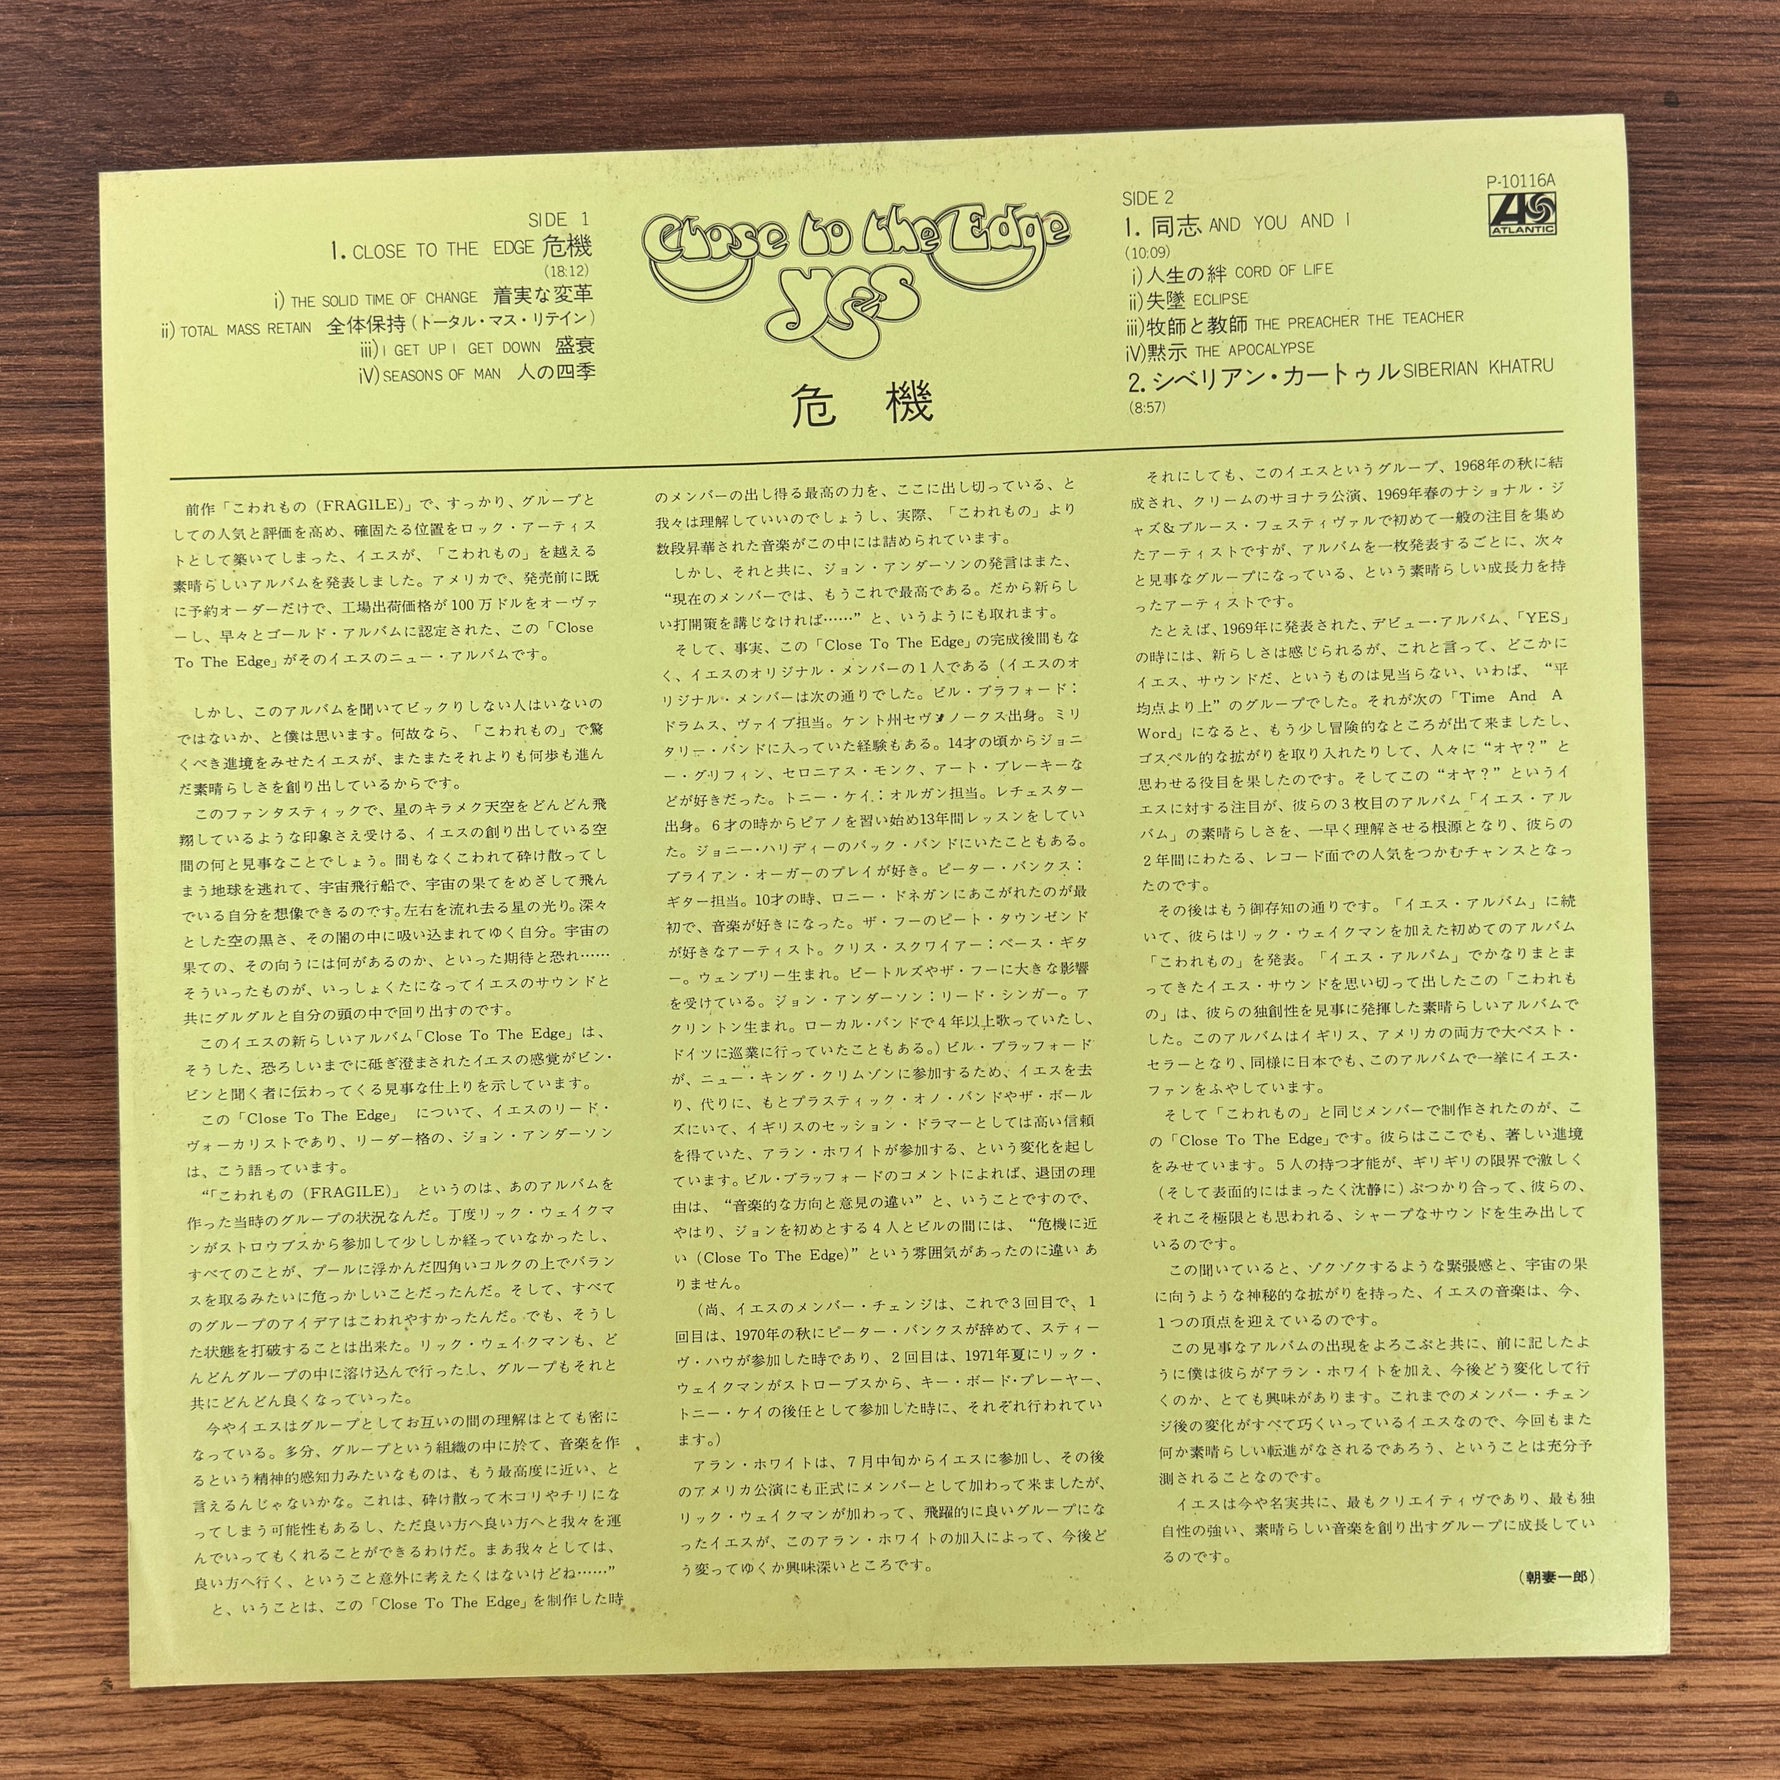 SIDE 1
1. CLOSE TO THE EDGE 危機
(18:12)
i) THE SOLID TIME OF CHANGE 着実な変革
ii) TOTAL MASS RETAIN 全体保持(トータル・マス・リテイン)
iii) I GET UP I GET DOWN 盛衰
iV) SEASONS OF MAN 人の四季
Close to the Edge
YES
危機
SIDE 2
1. 同志 AND YOU AND I
(10:09)
i)人生の絆 CORD OF LIFE
ii)失墜 ECLIPSE
iii)牧師と教師 THE PREACHER THE TEACHER
iV)黙示 THE APOCALYPSE
2. シベリアン・カートゥル SIBERIAN KHATRU
(8:57)
P-10116A
ATLANTIC
前作「こわれもの(FRAGILE)」で、すっかり、グループと
しての人気と評価を高め、確固たる位置をロック・アーティス
トとして築いてしまった、イエスが、「こわれもの」を越える
素晴らしいアルバムを発表しました。アメリカで、発売前に既
に予約オーダーだけで、工場出荷価格が100万ドルをオーヴァ
ーし、早々とゴールド・アルバムに認定された、この「Close
To The Edge」がそのイエスのニュー・アルバムです。
しかし、このアルバムを聞いてビックりしない人はいないの
ではないか、と僕は思います。何故なら、「こわれもの」で驚
くべき進境をみせたイエスが、またまたそれよりも何歩も進ん
だ素晴らしさを創り出しているからです。
このファンタスティックで、星のキラメク天空をどんどん飛
翔しているような印象さえ受ける、イエスの創り出している空
間の何と見事なことでしょう。間もなくこわれて砕け散ってし
まう地球を逃れて、宇宙飛行船で、宇宙の果てをめざして飛ん
でいる自分を想像できるのです。左右を流れ去る星の光り。深々
とした空の黒さ、その闇の中に吸い込まれてゆく自分。宇宙の
果ての、その向うには何があるのか、といった期待と恐れ……
そういったものが、いっしょくたになってイエスのサウンドと
共にグルグルと自分の頭の中で回り出すのです。
このイエスの新らしいアルバム「Close To The Edge」は、
そうした、恐ろしいまでに砥ぎ澄まされたイエスの感覚がビン・
ビンと聞く者に伝わってくる見事な仕上りを示しています。
この「Close To The Edge」 について、イエスのリード・
ヴォーカリストであり、リーダー格の、ジョン・アンダーソン
は、こう語っています。
“「こわれもの(FRAGILE)」 というのは、あのアルバムを
作った当時のグループの状況なんだ。丁度リック・ウェイクマ
ンがストロウブスから参加して少ししか経っていなかったし、
すべてのことが、プールに浮かんだ四角いコルクの上でバラン
スを取るみたいに危っかしいことだったんだ。そして、すべて
のグループのアイデアはこわれやすかったんだ。でも、そうし
た状態を打破することは出来た。リック・ウェイクマンも、ど
んどんグループの中に溶け込んで行ったし、グループもそれと
共にどんどん良くなっていった。
今やイエスはグループとしてお互いの間の理解はとても密に
なっている。多分、グループという組織の中に於て、音楽を作
るという精神的感知力みたいなものは、もう最高度に近い、と
言えるんじゃないかな。これは、砕け散って木コリやチリにな
ってしまう可能性もあるし、ただ良い方へ良い方へと我々を運
んでいってもくれることができるわけだ。まあ我々としては、
良い方へ行く、ということ意外に考えたくはないけどね……”
と、いうことは、この「Close To The Edge」を制作した時
のメンバーの出し得る最高の力を、ここに出し切っている、と
我々は理解していいのでしょうし、実際、「こわれもの」より
数段昇華された音楽がこの中には詰められています。
しかし、それと共に、ジョン・アンダーソンの発言はまた、
“現在のメンバーでは、もうこれで最高である。だから新らし
い打開策を講じなければ……”と、いうようにも取れます。
そして、事実、この「Close To The Edge」の完成後間もな
く、イエスのオリジナル・メンバーの1人である(イエスのオ
リジナル・メンバーは次の通りでした。ビル・ブラフォード:
ドラムス、ヴァイブ担当。ケント州セヴンノークス出身。ミリ
タリー・バンドに入っていた経験もある。14才の頃からジョニ
ー・グリフィン、セロニアス・モンク、アート・ブレーキーな
どが好きだった。トニー・ケイ:オルガン担当。レチェスター
出身。6才の時からピアノを習い始め13年間レッスンをしてい
た。ジョニー・ハリディーのバック・バンドにいたこともある。
ブライアン・オーガーのプレイが好き。ピーター・バンクス:
ギター担当。10才の時、ロニー・ドネガンにあこがれたのが最
初で、音楽が好きになった。ザ・フーのピート・タウンゼンド
が好きなアーティスト。クリス・スクワイアー:ベース・ギタ
ー。ウェンブリー生まれ。ビートルズやザ・フーに大きな影響
を受けている。ジョン・アンダーソン:リード・シンガー。ア
クリントン生まれ。ローカル・バンドで4年以上歌っていたし、
ドイツに巡業に行っていたこともある。)ビル・ブラッフォード
が、ニュー・キング・クリムゾンに参加するため、イエスを去
り、代りに、もとプラスティック・オノ・バンドやザ・ボール
ズにいて、イギリスのセッション・ドラマーとしては高い信頼
を得ていた、アラン・ホワイトが参加する、という変化を起し
ています。ビル・ブラッフォードのコメントによれば、退団の理
由は、“音楽的な方向と意見の違い”と、いうことですので、
やはり、ジョンを初めとする4人とビルの間には、“危機に近
い(Close To The Edge)”という雰囲気があったのに違いあ
りません。
(尚、イエスのメンバー・チェンジは、これで3回目で、1
回目は、1970年の秋にピーター・バンクスが辞めて、スティー
ヴ・ハウが参加した時であり、2回目は、1971年夏にリック・
ウェイクマンがストローブスから、キー・ボード・プレーヤー、
トニー・ケイの後任として参加した時に、それぞれ行われてい
ます。)
アラン・ホワイトは、7月中旬からイエスに参加し、その後
のアメリカ公演にも正式にメンバーとして加わって来ましたが、
リック・ウェイクマンが加わって、飛躍的に良いグループにな
ったイエスが、このアラン・ホワイトの加入によって、今後ど
う変ってゆくか興味深いところです。
それにしても、このイエスというグループ、1968年の秋に結
成され、クリームのサヨナラ公演、1969年春のナショナル・ジ
ャズ&ブルース・フェスティヴァルで初めて一般の注目を集め
たアーティストですが、アルバムを一枚発表するごとに、次々
と見事なグループになっている、という素晴らしい成長力を持
ったアーティストです。
たとえば、1969年に発表された、デビュー・アルバム、「YES」
の時には、新らしさは感じられるが、これと言って、どこかに
イエス、サウンドだ、というものは見当らない、いわば、“平
均点より上”のグループでした。それが次の「Time And A
Word」になると、もう少し冒険的なところが出て来ましたし、
ゴスペル的な拡がりを取り入れたりして、人々に“オヤ?”と
思わせる役目を果したのです。そしてこの“オヤ?”というイ
エスに対する注目が、彼らの3枚目のアルバム「イエス・アル
バム」の素晴らしさを、一早く理解させる根源となり、彼らの
2年間にわたる、レコード面での人気をつかむチャンスとなっ
たのです。
その後はもう御存知の通りです。「イエス・アルバム」に続
いて、彼らはリック・ウェイクマンを加えた初めてのアルバム
「こわれもの」を発表。「イエス・アルバム」でかなりまとま
ってきたイエス・サウンドを思い切って出したこの「こわれも
の」は、彼らの独創性を見事に発揮した素晴らしいアルバムで
した。このアルバムはイギリス、アメリカの両方で大ベスト・
セラーとなり、同様に日本でも、このアルバムで一挙にイエス・
ファンをふやしています。
そして「こわれもの」と同じメンバーで制作されたのが、こ
の「Close To The Edge」です。彼らはここでも、著しい進境
をみせています。5人の持つ才能が、ギリギリの限界で激しく
(そして表面的にはまったく沈静に)ぶつかり合って、彼らの、
それこそ極限とも思われる、シャープなサウンドを生み出して
いるのです。
この聞いていると、ゾクゾクするような緊張感と、宇宙の果
に向うような神秘的な拡がりを持った、イエスの音楽は、今、
1つの頂点を迎えているのです。
この見事なアルバムの出現をよろこぶと共に、前に記したよ
うに僕は彼らがアラン・ホワイトを加え、今後どう変化して行
くのか、とても興味があります。これまでのメンバー・チェン
ジ後の変化がすべて巧くいっているイエスなので、今回もまた
何か素晴らしい転進がなされるであろう、ということは充分予
測されることなのです。
イエスは今や名実共に、最もクリエイティヴであり、最も独
自性の強い、素晴らしい音楽を創り出すグループに成長してい
るのです。
(朝妻一郎)